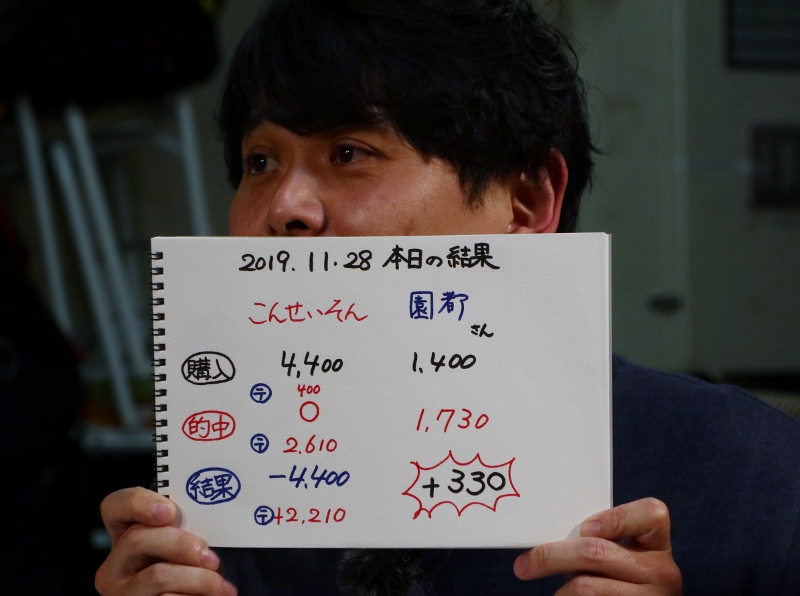 2019.11.28 本日の結果
こんせいそん 園都さん
購入 4,400 1,400
テ 400
的中 〇 1,730
テ 2,610
結果 -4,400 +330
テ+2,210